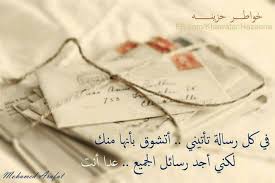 خواطر حزينه
FB.com/Khawater.Hazeena
في كل رسالة تأتيني .. أتشوق بأنها منك
لكني أجد رسائل الجميع .. عدا أنت
Mohamed Arafat